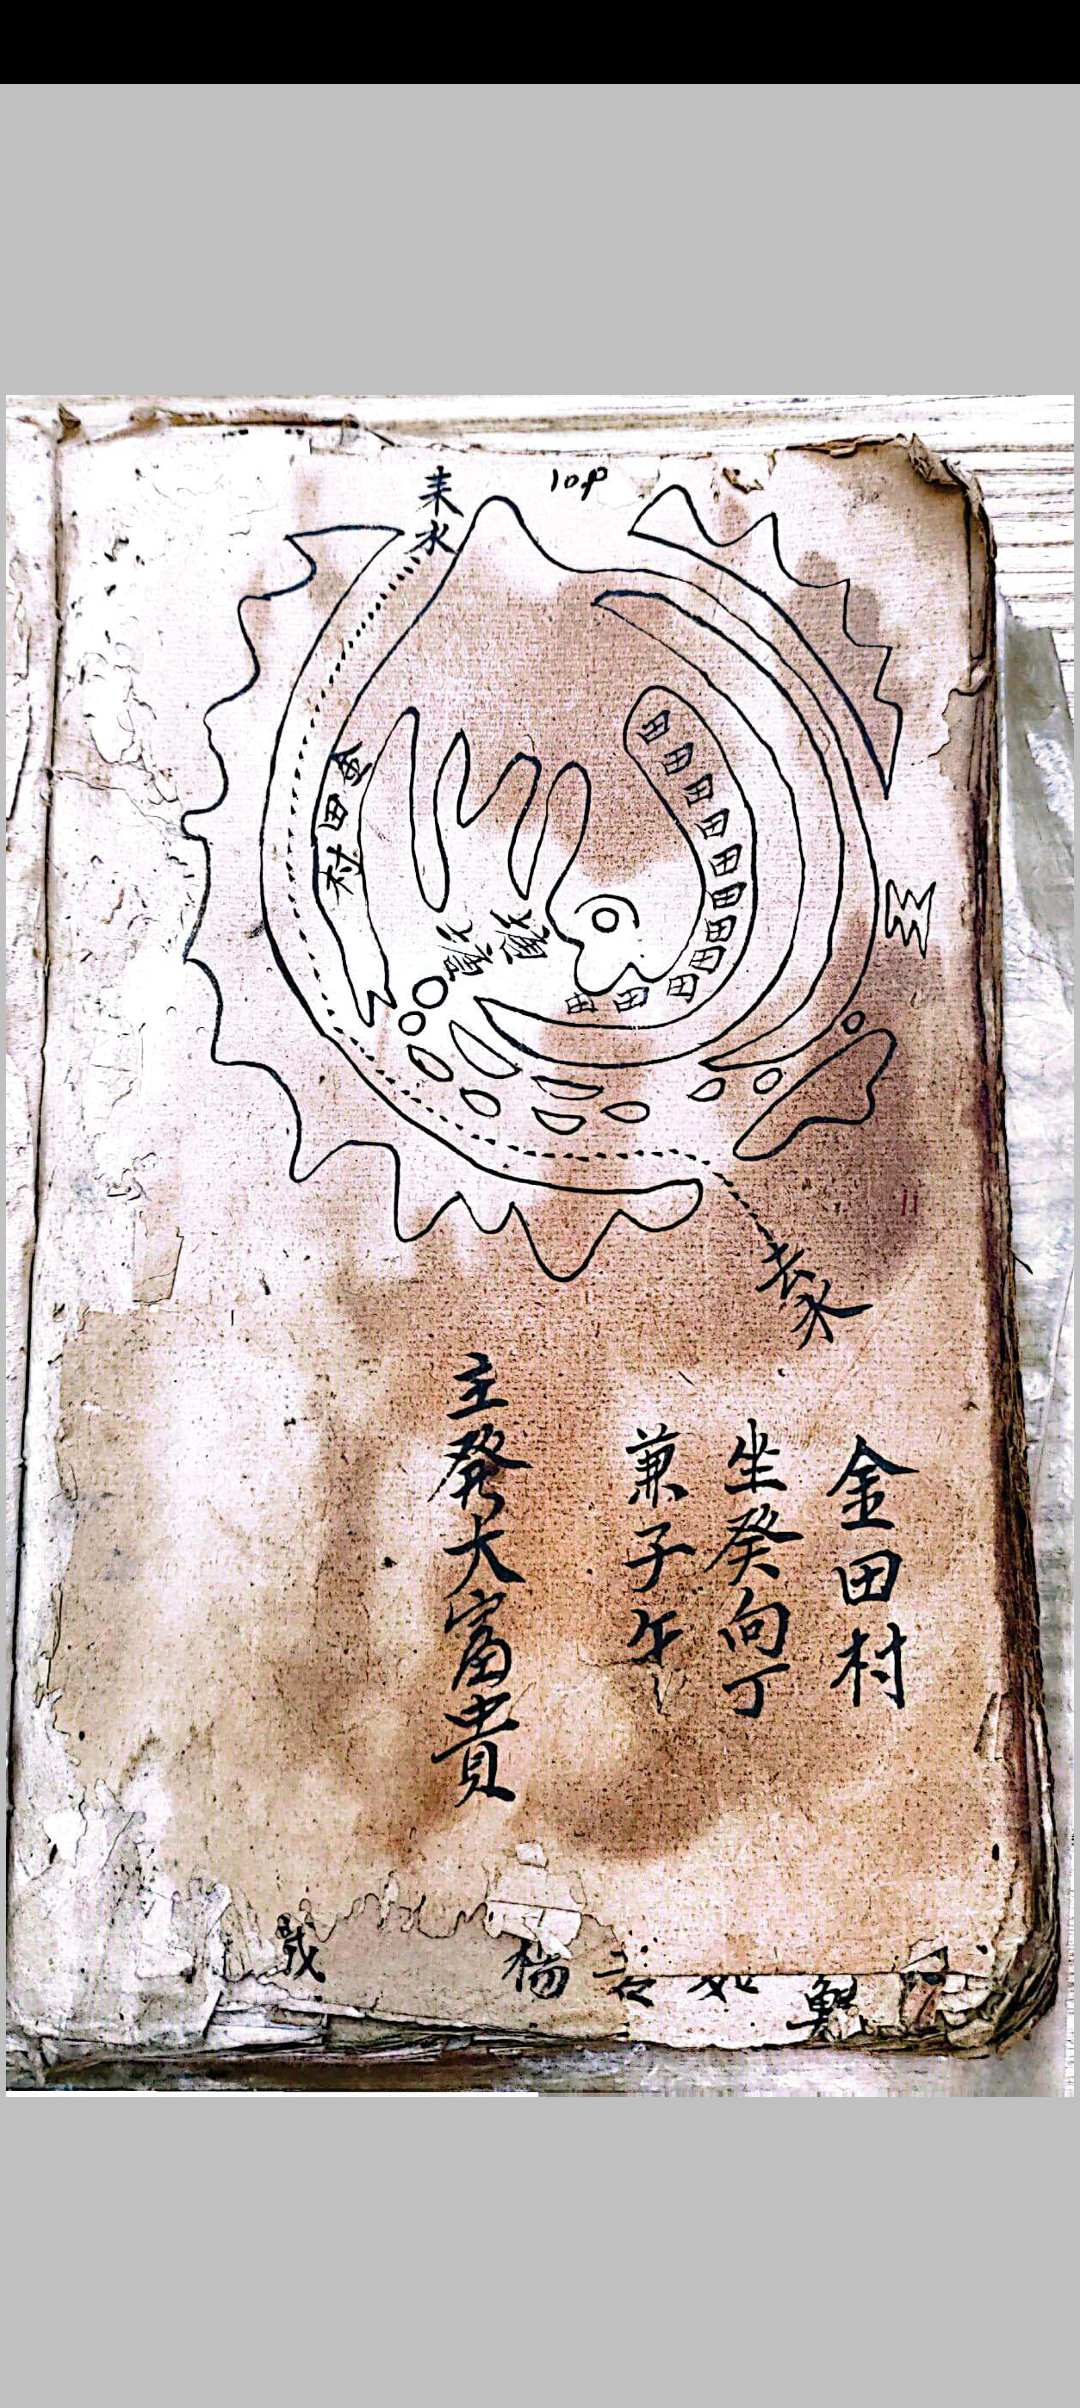 来水
10p
金田村
田田田田田田田田田田田
去水
金田村
坐癸向丁
兼子午
主發大富貴
楊